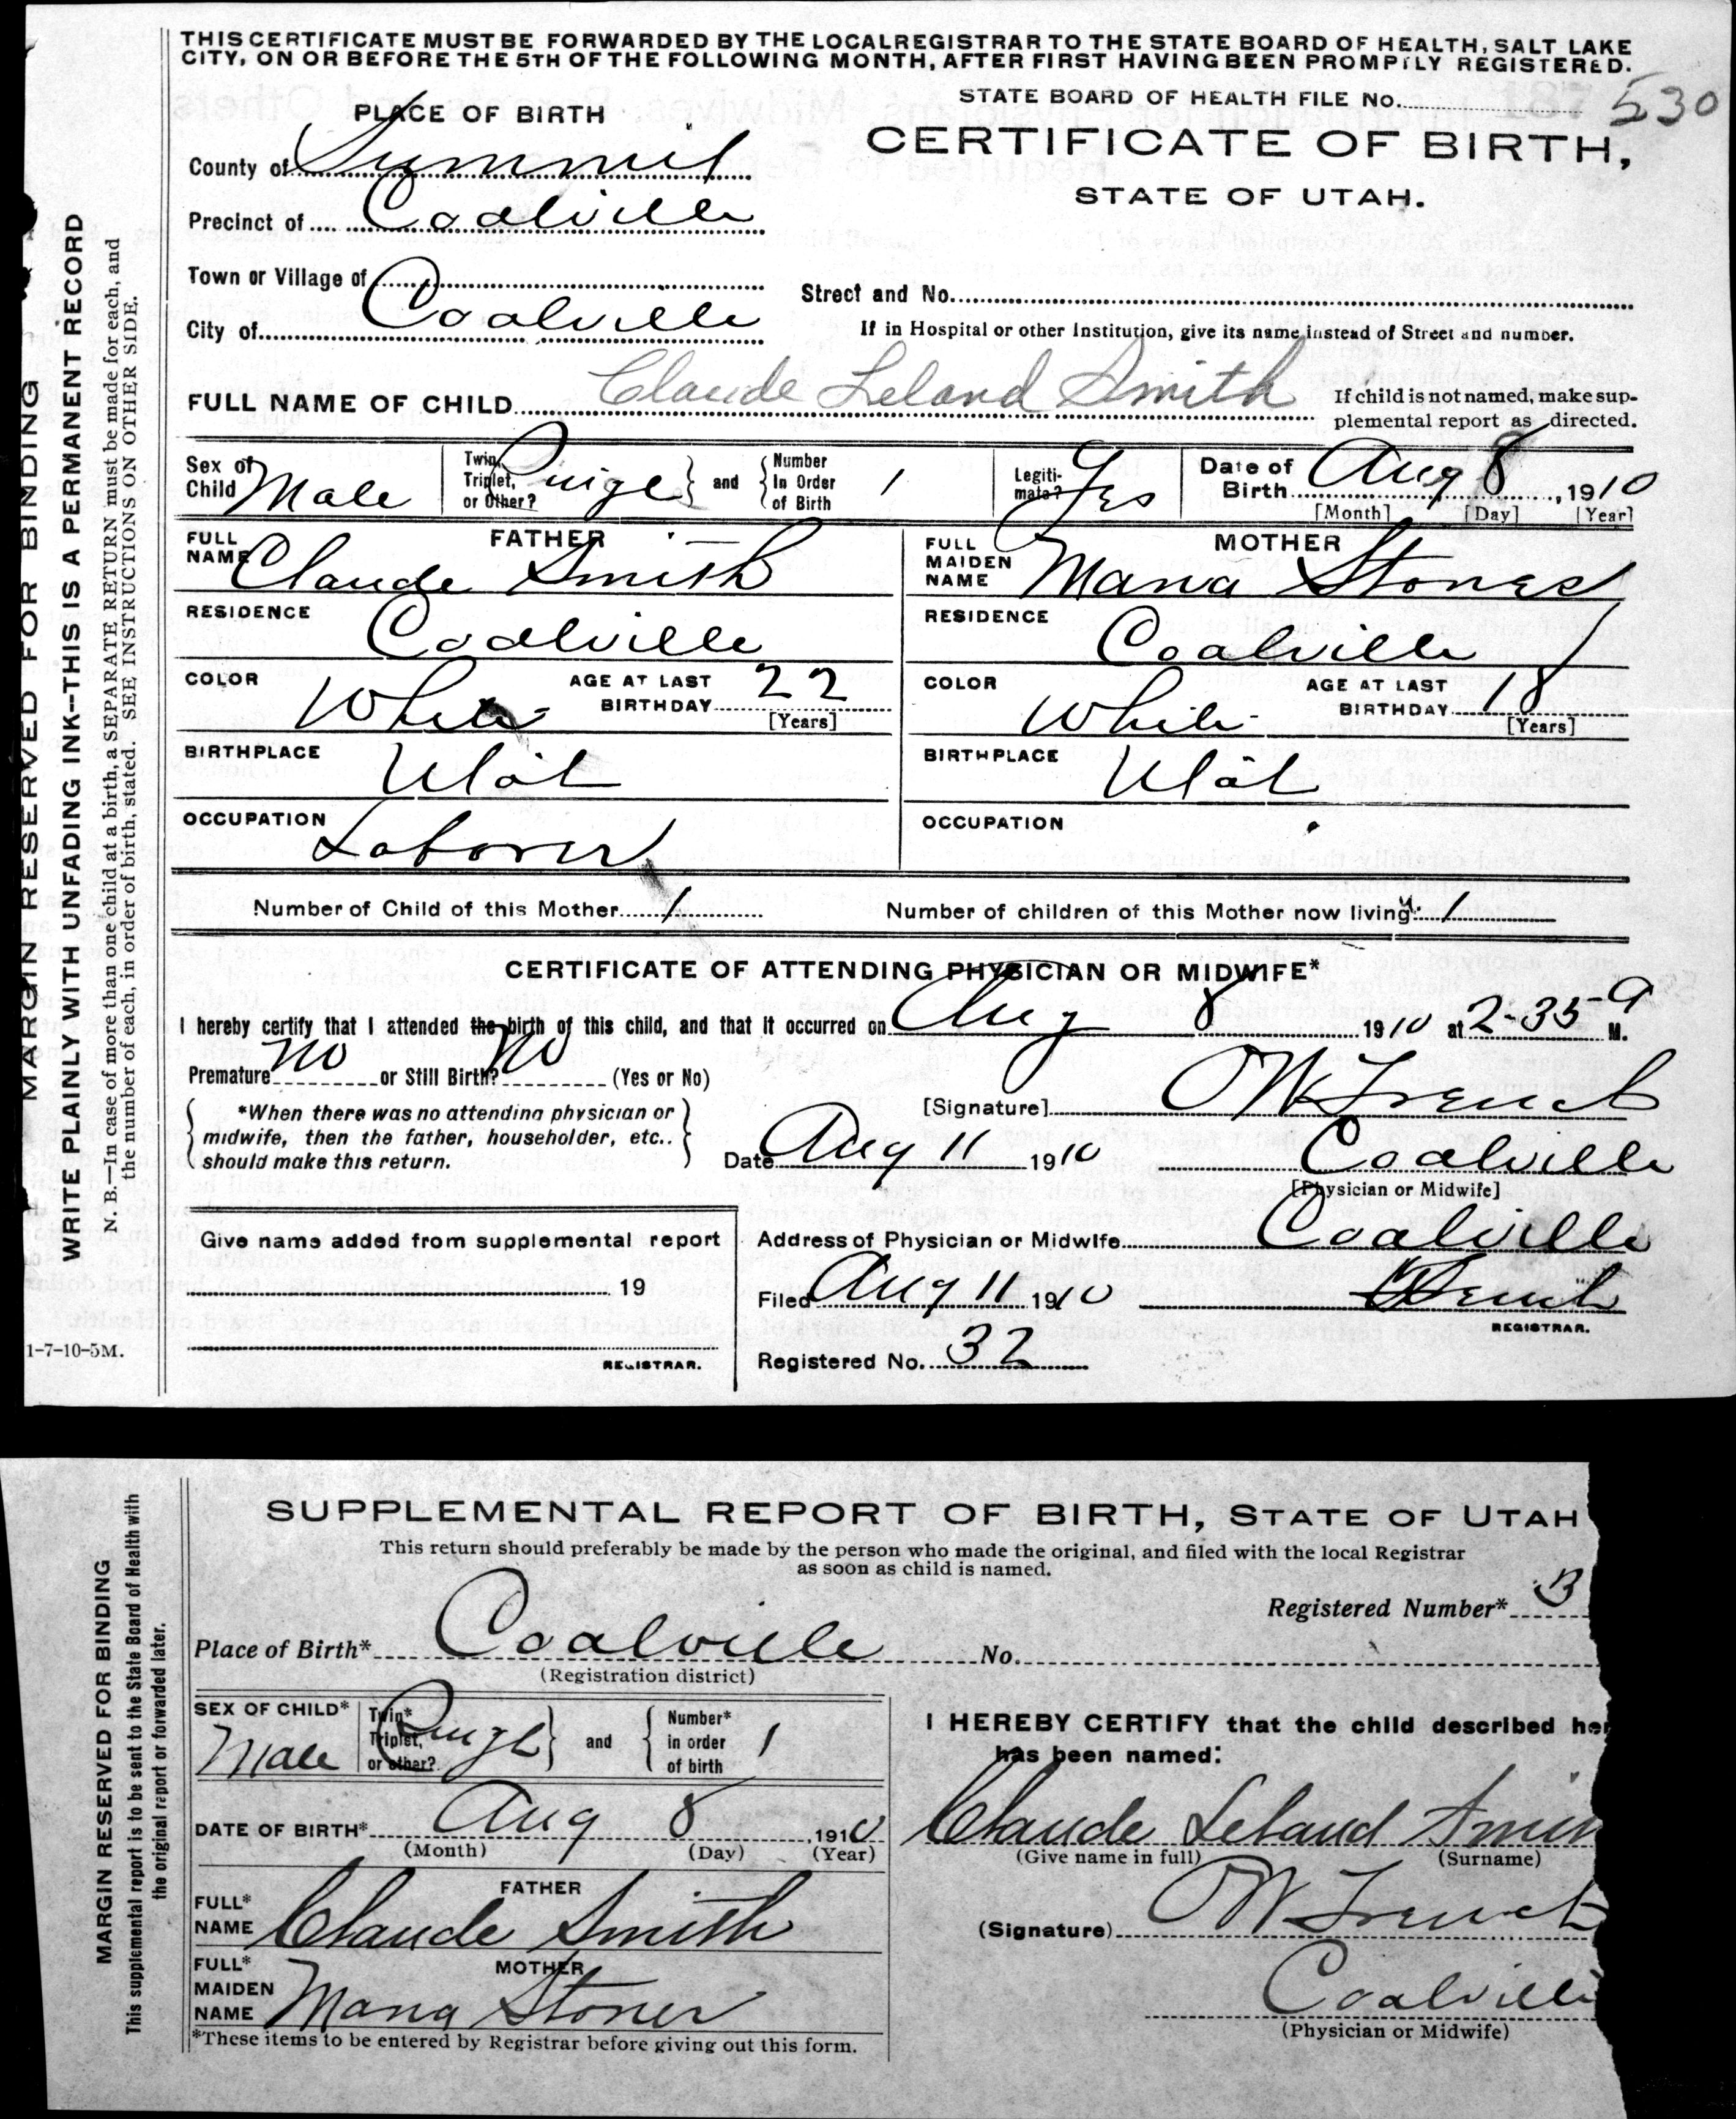 THIS CERTIFICATE MUST BE FORWARDED BY THE LOCAL REGISTRAR TO THE STATE BOARD OF HEALTH, SALT LAKE
CITY, ON OR BEFORE THE 5TH OF THE FOLLOWING MONTH, AFTER FIRST HAVING BEEN PROMPTLY REGISTERED.
STATE BOARD OF HEALTH FILE No. 530
PLACE OF BIRTH
CERTIFICATE OF BIRTH,
STATE OF UTAH.
County of Summit
Precinct of Coalville
Town or Village of
Street and No.
City of Coalville
If in Hospital or other Institution, give its name instead of Street and number.
FULL NAME OF CHILD Claude Leland Smith
If child is not named, make sup-
plemental report as directed.
Sex of Child Male
Twin, Triplet, or Other?
and
Number In Order of Birth 1
Legiti-mate? Yes
Date of Birth Aug 8, 1910
[Month] [Day] [Year]
FATHER
FULL NAME Claude Smith
RESIDENCE Coalville
COLOR White
AGE AT LAST BIRTHDAY 22
[Years]
BIRTHPLACE Utah
OCCUPATION Laborer
MOTHER
FULL MAIDEN NAME Stoner
RESIDENCE Coalville
COLOR White
AGE AT LAST BIRTHDAY 18
[Years]
BIRTHPLACE Utah
OCCUPATION
Number of Child of this Mother 1
Number of children of this Mother now living 1
CERTIFICATE OF ATTENDING PHYSICIAN OR MIDWIFE*
I hereby certify that I attended the birth of this child, and that it occurred on Aug 8 1910 at 2-35 a M.
Premature no or Still Birth? no (Yes or No)
*When there was no attending physician or
midwife, then the father, householder, etc..
should make this return.
[Signature]
Date Aug 11 1910
Coalville
[Physician or Midwife]
Give name added from supplemental report
19
REGISTRAR.
Address of Physician or Midwife Coalville
Filed Aug 11 1910
REGISTRAR.
Registered No. 32
MARGIN RESERVED FOR BINDING
WRITE PLAINLY WITH UNFADING INK—THIS IS A PERMANENT RECORD
N. B.—In case of more than one child at a birth, a SEPARATE RETURN must be made for each, and
the number of each, in order of birth, stated. SEE INSTRUCTIONS ON OTHER SIDE.
1-7-10-5M.
SUPPLEMENTAL REPORT OF BIRTH, STATE OF UTAH
This return should preferably be made by the person who made the original, and filed with the local Registrar
as soon as child is named.
Registered Number*
Place of Birth* Coalville No.
(Registration district)
SEX OF CHILD* Male
Twin* Triplet, or other?
and
Number* in order of birth 1
DATE OF BIRTH* Aug 8, 1910
(Month) (Day) (Year)
FATHER
FULL* NAME Claude Smith
MOTHER
FULL* MAIDEN NAME Stoner
*These items to be entered by Registrar before giving out this form.
I HEREBY CERTIFY that the child described her
has been named:
Claude Leland Smi
(Give name in full) (Surname)
(Signature)
Coalville
(Physician or Midwife)
MARGIN RESERVED FOR BINDING
This supplemental report is to be sent to the State Board of Health with
the original report or forwarded later.